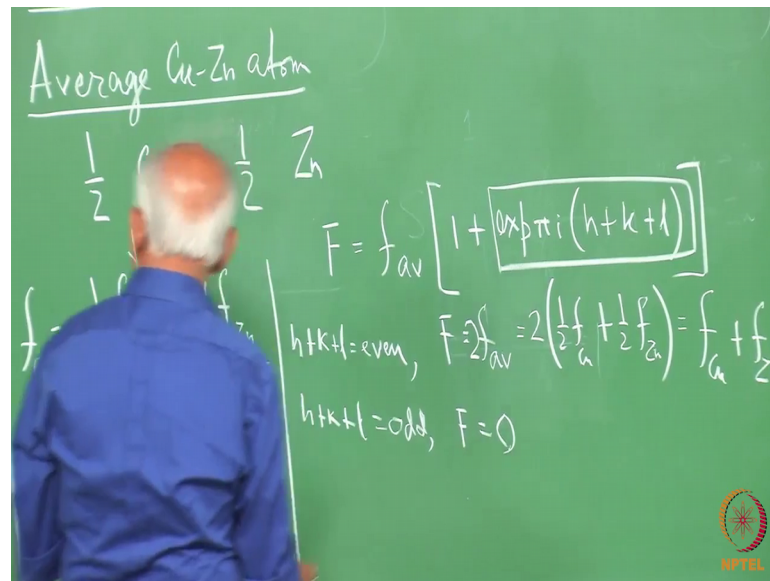 Average Cu-Zn atom
1/2 1/2 Zn
F = f_av [1 + exp πi (h+k+l)]
f Zn
h+k+l=even, F=2f_av = 2(1/2 f_Cu + 1/2 f_Zn) = f_Cu + f_Z
h+k+l=odd, F=0
NPTEL